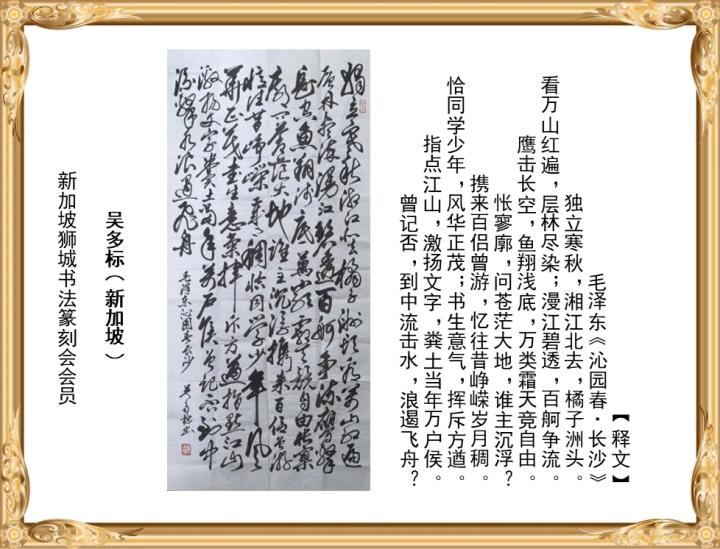 【释文】
毛泽东《沁园春·长沙》
独立寒秋，湘江北去，橘子洲头。
看万山红遍，层林尽染；漫江碧透，百舸争流。
鹰击长空，鱼翔浅底，万类霜天竞自由。
怅寥廓，问苍茫大地，谁主沉浮？
携来百侣曾游，忆往昔峥嵘岁月稠。
恰同学少年，风华正茂；书生意气，挥斥方遒。
指点江山，激扬文字，粪土当年万户侯。
曾记否，到中流击水，浪遏飞舟？
独立寒秋湘江北去橘子洲头看万山红遍
层林尽染漫江碧透百舸争流鹰击
长空鱼翔浅底万类霜天竞自由怅寥
廓问苍茫大地谁主沉浮携来百侣曾游
忆往昔峥嵘岁月稠恰同学少年风
华正茂书生意气挥斥方遒指点江山
激扬文字粪土当年万户侯曾记否到中
流击水浪遏飞舟 毛泽东沁园春长沙 吴多标书
吴多标（新加坡）
新加坡狮城书法篆刻会会员